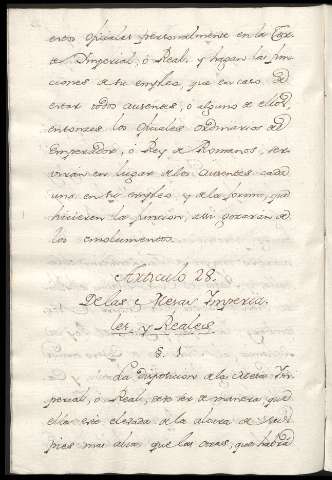 estos oficiales personalmente en la Cor-
te Imperial, ó Real, y hagan las fun-
ciones de su empleo, que en caso de
estar todos ausentes, ó alguno de ellos,
entonces los oficiales ordinarios del
Emperador, ó Rey de Romanos, ser-
viran en lugar de los ausentes cada
uno en su empleo, y de la forma, que
hicieren la funcion, assi gozaran de
los emolumentos.
Articulo 28.
De las Mesas Imperia-
les, y Reales
§. 1
La disposicion de la Mesa Im-
perial, ó Real, debe ser de manera que
ella esté elevada de la altura de seis
pies mas alta que las otras, que habrá